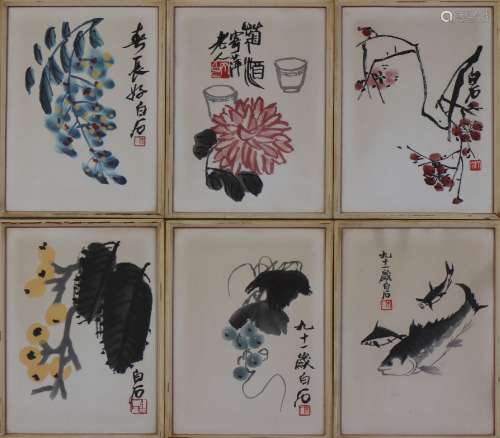 春長好白石
菊酒
寄萍
老人
白石
白石
九十一歲白石
九十一歲白石